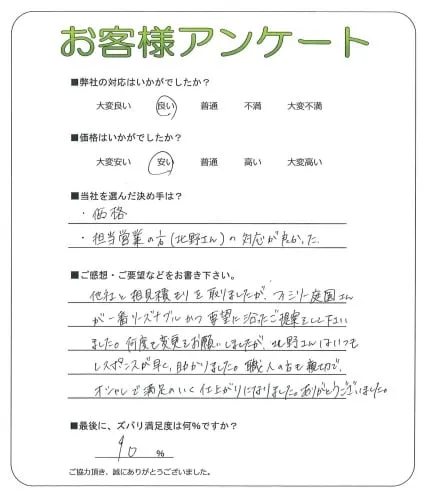 お客様アンケート
■弊社の対応はいかがでしたか？
大変良い 良い 普通 不満 大変不満
■価格はいかがでしたか？
大変安い 安い 普通 高い 大変高い
■当社を選んだ決め手は？
・価格
・担当営業の方(北野さん)の対応が良かった
■ご感想・ご要望などをお書き下さい。
他社と相見積もりを取りましたが、ファミリー庭園さん
が一番リーズナブルかつ要望に沿ったご提案をして下さい
ました。何度も変更をお願いしましたが、北野さんはいつも
レスポンスが早く、助かりました。職人の方も親切で、
オシャレで満足のいく仕上がりになりました。ありがとうございました。
■最後に、ズバリ満足度は何％ですか？
90 ％
ご協力頂き、誠にありがとうございました。